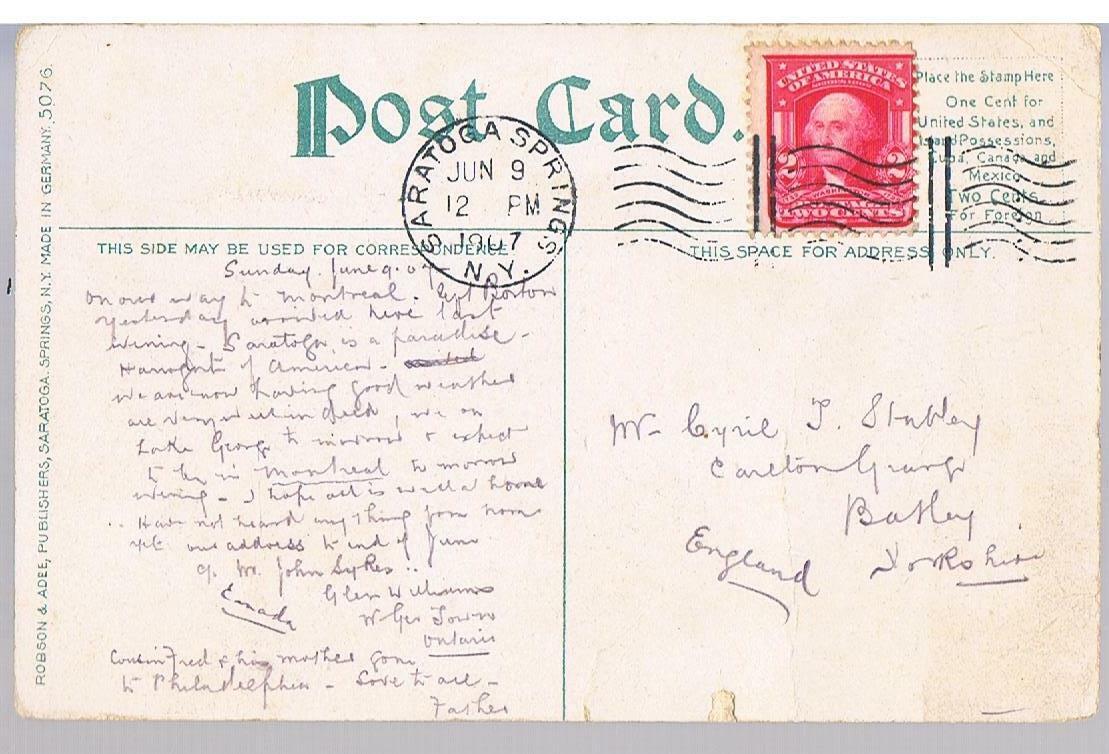 Post Card.
UNITED STATES
OF AMERICA
2 2
TWO CENTS
Place the Stamp Here
One Cent for
United States, and
Island Possessions,
Cuba, Canada and
Mexico
Two Cents
For Foreign
SARATOGA SPRINGS
JUN 9
12 PM
1907
N.Y.
THIS SIDE MAY BE USED FOR CORRESPONDENCE.
THIS SPACE FOR ADDRESS ONLY.
Sunday. June 9. 07
on our way to Montreal. Left Boston
yesterday arrived here last
evening - Saratoga is a paradise -
Harrogate of America -
we are now having good weather
are very well indeed, we on
Lake George to morrow & expect
to be in Montreal to morrow
evening - I hope all is well at home
.. Have not heard anything from home
yet our address to end of June
c/o Mr. John Sykes ..
Glen Williams
Canada
Geo Town
Ontario
Cousin Fred & his mother gone
to Philadelphia - Love to all -
Father
Mr Cyril T. Stubley
Carlton Grange
Batley
Yorkshire
England
ROBSON & ADEE, PUBLISHERS, SARATOGA. SPRINGS, N.Y. MADE IN GERMANY. 5076.